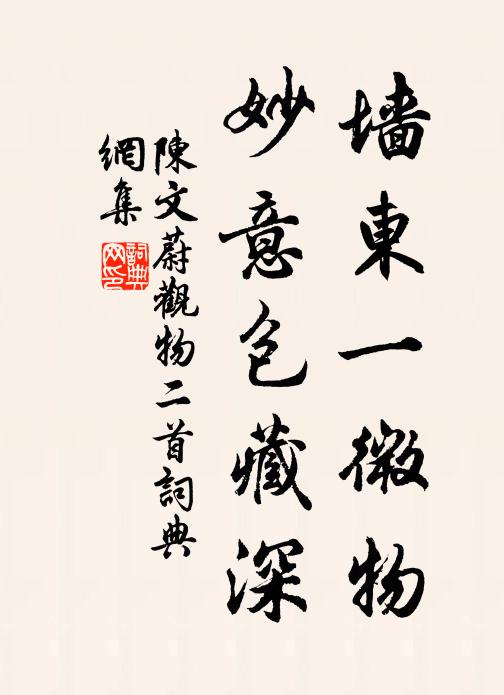 墙東一微物
妙意包藏深
陳文蔚觀物二首詞典
網集
詞典网印